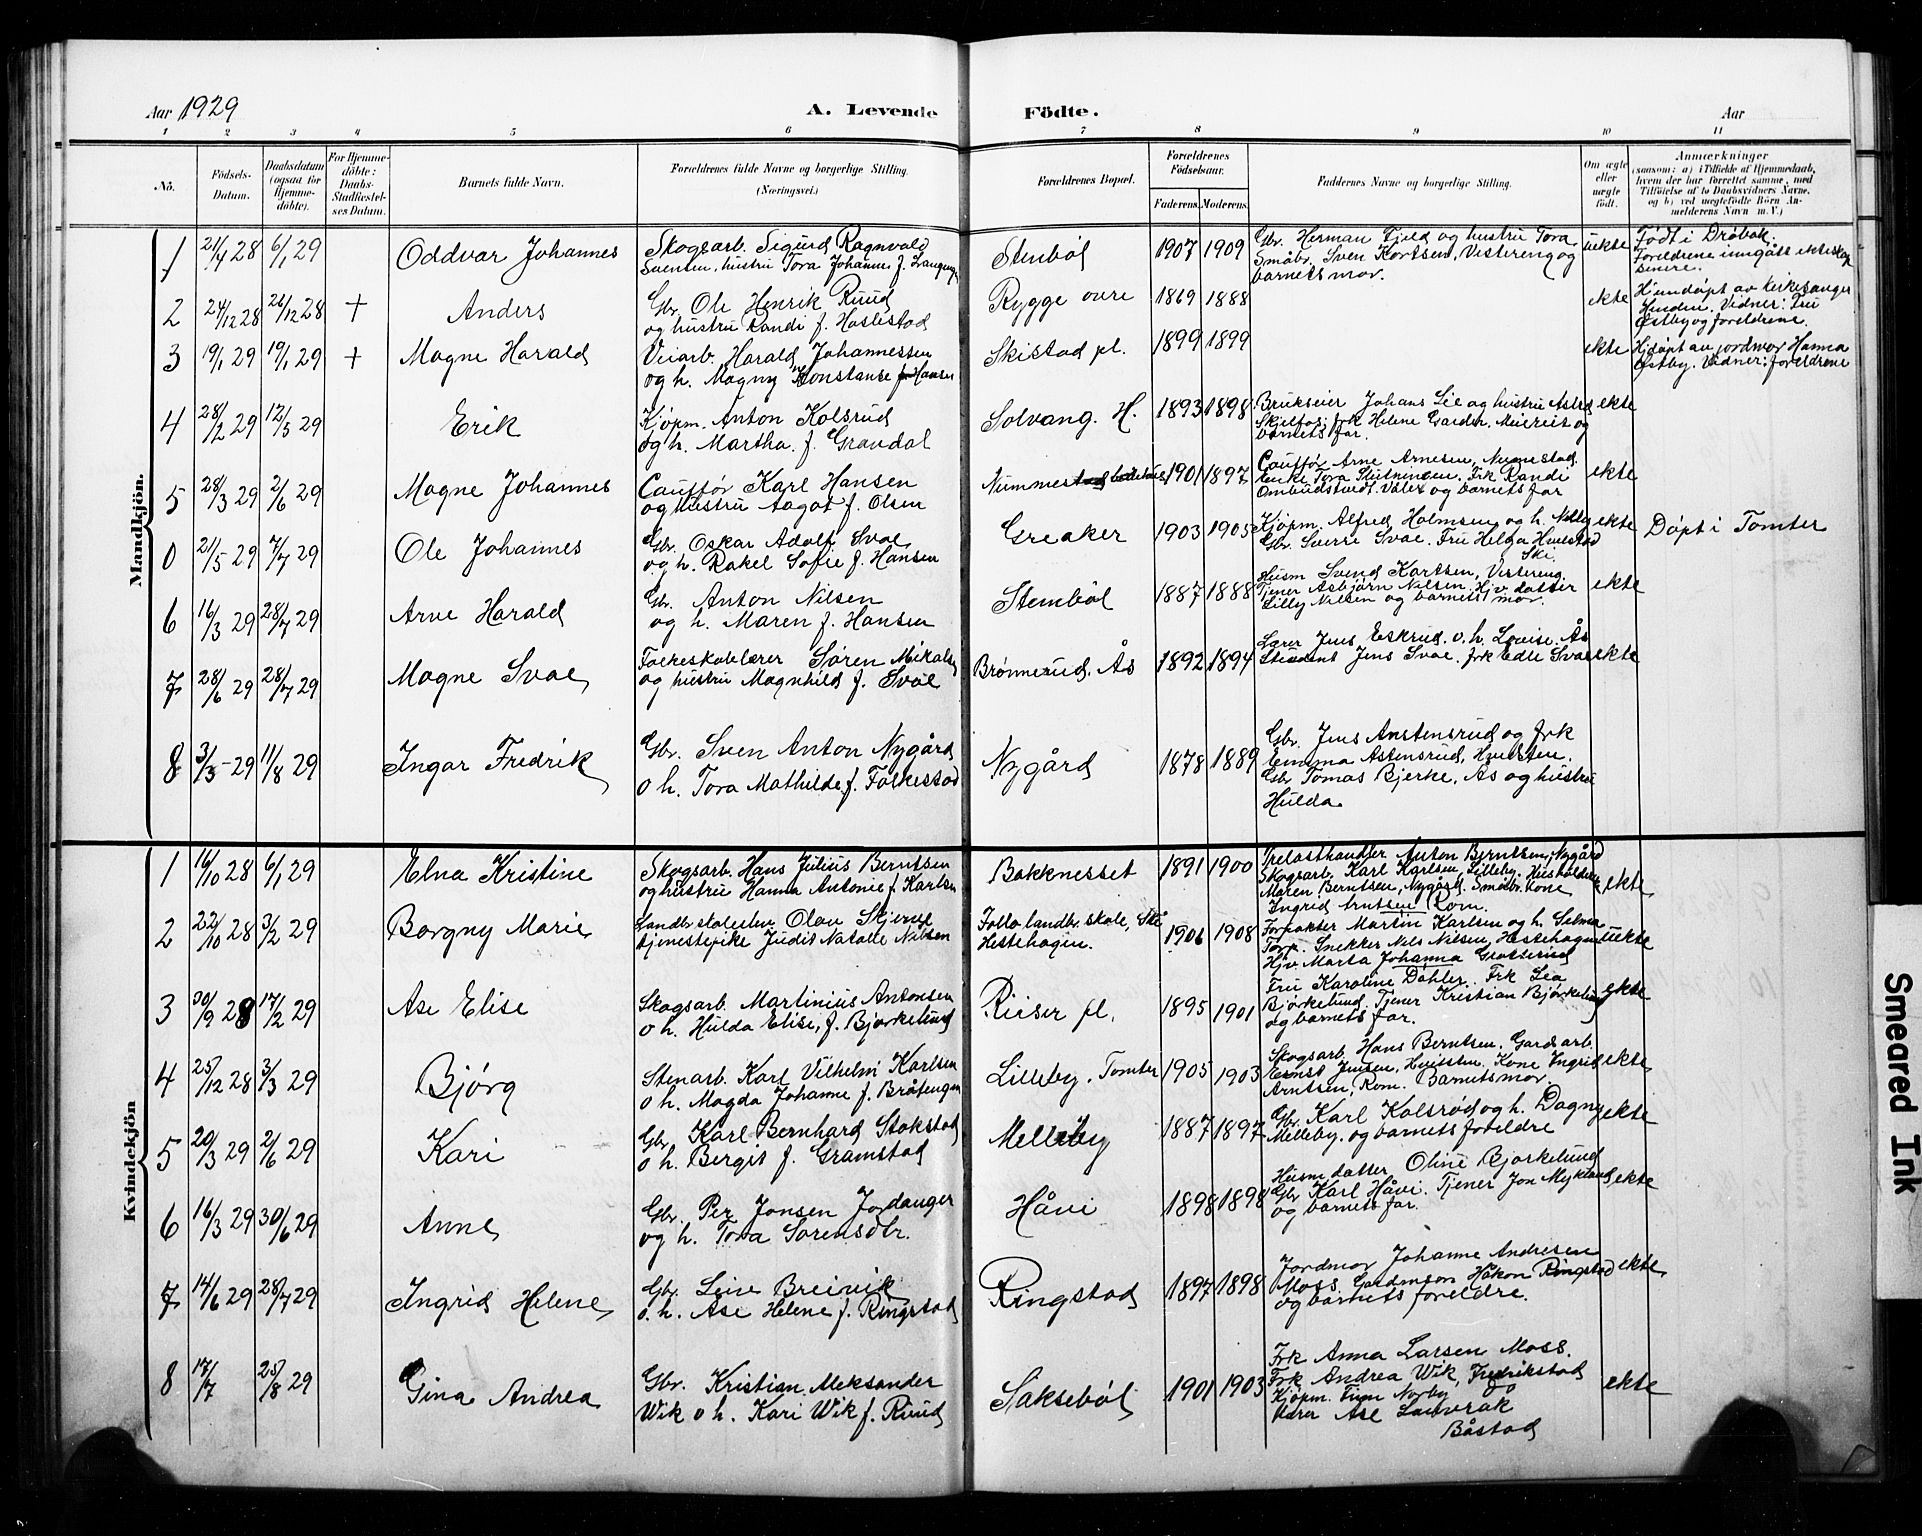 Aar 1929 A. Levende Födte. Aar
1 2 3 4 5 6 7 8 9 10 11
No. Födsels-Datum. Daabsdatum (ogsaa for Hjemme-döbte). For Hjemme-döbte: Daabs-Stadfæstel-ses Datum. Barnets fulde Navn. Forældrenes fulde Navne og borgerlige Stilling. (Næringsvei.) Forældrenes Bopæl. Forældrenes Födselsaar. Faderens. Moderens. Faddernes Navne og borgerlige Stilling. Om ægte eller uægte födt. Anmærkninger (saasom: a) i Tilfælde af Hjemmedaab, hvem der har forrettet samme, med Tilföielse af to Daabsvidners Navne, og b) ved uægtefödte Börn An-melderens Navn m. V.)
Mandkjön.
1 21/4 28 6/1 29 Oddvar Johannes Skogsarb. Sigurd Ragnvald
Svensen, hustru Tora Johanne f. Stenbøl 1907 1909 Gbr. Herman Fjeld og hustru Tora
Småbr. Sven Kortsen, Vestereng og
barnets mor. uekte Født i Drøbak.
Foreldrene inngått ekteskap
senere.
2 24/12 28 26/12 28 + Anders Gbr. Ole Henrik Ruud
og hustru Randi f. Haslestad Rygge øvre 1869 1888 ekte Hjemdøpt av kirkesanger
Vidner: Fru
Østby og foreldrene.
3 19/1 29 19/1 29 + Magne Harald Veiarb. Harald Johannessen
og h. Magny Konstanse Hansen Skistad pl. 1899 1899 ekte Hjdøpt av jordmor Hanna
Østby. Vidner: foreldrene
4 28/2 29 12/5 29 Erik Kjøpm. Anton Kolsrud
og h. Martha f. Gravdal Solvang. H. 1893 1898 Brukseier Johans Lie og hustru Astrid
frk Helene Garder. Meierist og
barnets far. ekte
5 28/3 29 2/6 29 Magne Johannes Cauffør Karl Hansen
og hustru Aagot f. Olsen 1901 1897 Cauffør Arne Arnesen,
Enke Tora Frk Randi
og barnets far ekte
0 21/5 29 7/7 29 Ole Johannes Gbr. Oskar Adolf Svae
og h. Rakel Sofie f. Hansen Greaker 1903 1905 Kjøpm. Alfred Holmsen og h. Nelly
Gbr. Sverre Svae. Fru Helga
Ski ekte Døpt i Tomter
6 16/3 29 28/7 29 Arve Harald Gbr. Anton Nilsen
og h. Maren f. Hansen Stenbøl 1887 1888 Husm Svend Kortsen, Vestereng
Tjener Asbjørn Nilsen. Hjv. datter
Lilly Nilsen og barnets mor. ekte
7 28/6 29 28/7 29 Magne Svae Folkeskolelærer Søren Mikalsen
og hustru Magnhild f. Svae Brønnerud. Ås 1892 1894 Lærer Jens Eskrud. o. h. Lovise. Ås
Student Jens Svae. frk Edle Svae ekte
8 3/3 - 29 11/8 29 Ingar Fredrik Gbr. Sven Anton Nygård
o h. Tora Mathilde f. Folkestad Nygård 1878 1889 Gbr. Jens Anstensrud og frk
Emma Astensrud, Hvitsten.
Gbr Tomas Bjerke, Ås og hustru
Hulda.
Kvindekjön
1 16/10 28 6/1 29 Elna Kristine Skogsarb. Hans Julius Berntsen
og hustru Hanna Antonie f. Karlsen Bakknesset 1891 1900 Trelasthandler Anton Berntsen, Nygård
Skogsarb. Karl Karlsen, Lilleby.
Maren Berntsen, Nygård. Småbr. kone
Ingrid Arntsen Rom. ekte
2 22/10 28 3/2 29 Borgny Marie Landbr. skoleelev Olav Skjerve
tjenestepike Judit Natalie Nilsen Follo landbr. skole, Ski
Hestehagen. 1906 1908 Forpakter Martin Karlsen og h. Selma
Torp. Snekker Nils Nilsen, Hestehagen
Hjv Marta Johanna uekte
3 30/9 28 17/2 29 Ase Elise Skogsarb. Martinius Antonsen
o h. Hulda Elise, f. Bjørkelund Riiser pl. 1895 1901 Fru Karoline Dahler. Frk Lea
Bjørkelund. Tjener Kristian Bjørkelund
og barnets far. ekte
4 25/12 28 3/3 29 Bjørg Stenarb. Karl Vilhelm Karlsen
o h. Magda Johanne f. Bråtengen Lilleby. Tomter 1905 1903 Skogsarb. Hans Berntsen, Gardsarb.
Ernst Jensen, Hvitsten. Kone Ingrid
Arntsen, Rom. Barnets mor. ekte
5 20/3 29 2/6 29 Kari Gbr. Karl Bernhard Stokstad
o h. Bergit f. Gramstad Melleby 1887 1897 Gbr. Karl Kolsrød og h. Dagny
Melleby. og barnets foreldre ekte
6 16/3 29 30/6 29 Anne Gbr. Per Jonsen Jordanger
og h. Tora Sørensdtr. Håvi 1898 1898 Husm datter Oline Bjørkelund
Gbr Karl Håvi. Tjener Jon Mykland
og barnets far. ekte
7 14/6 29 28/7 29 Ingrid Helene Gbr. Leive Breivik
o. h. Ase Helene f. Ringstad Ringstad 1897 1898 Jordmor Johanne Andresen
Moss. Gardmann Håkon Ringstad
og barnets foreldre. ekte
8 17/7 25/8 29 Gina Andrea Gbr. Kristian Aleksander
Wik o h. Kari Wik f. Ruud Saksebøl 1901 1903 Frk Anna Larsen Moss.
Frk Andrea Wik, Fredrikstad
Kjøpm. Finn Norby
Lærer Ase
Båstad ekte
Smeared Ink